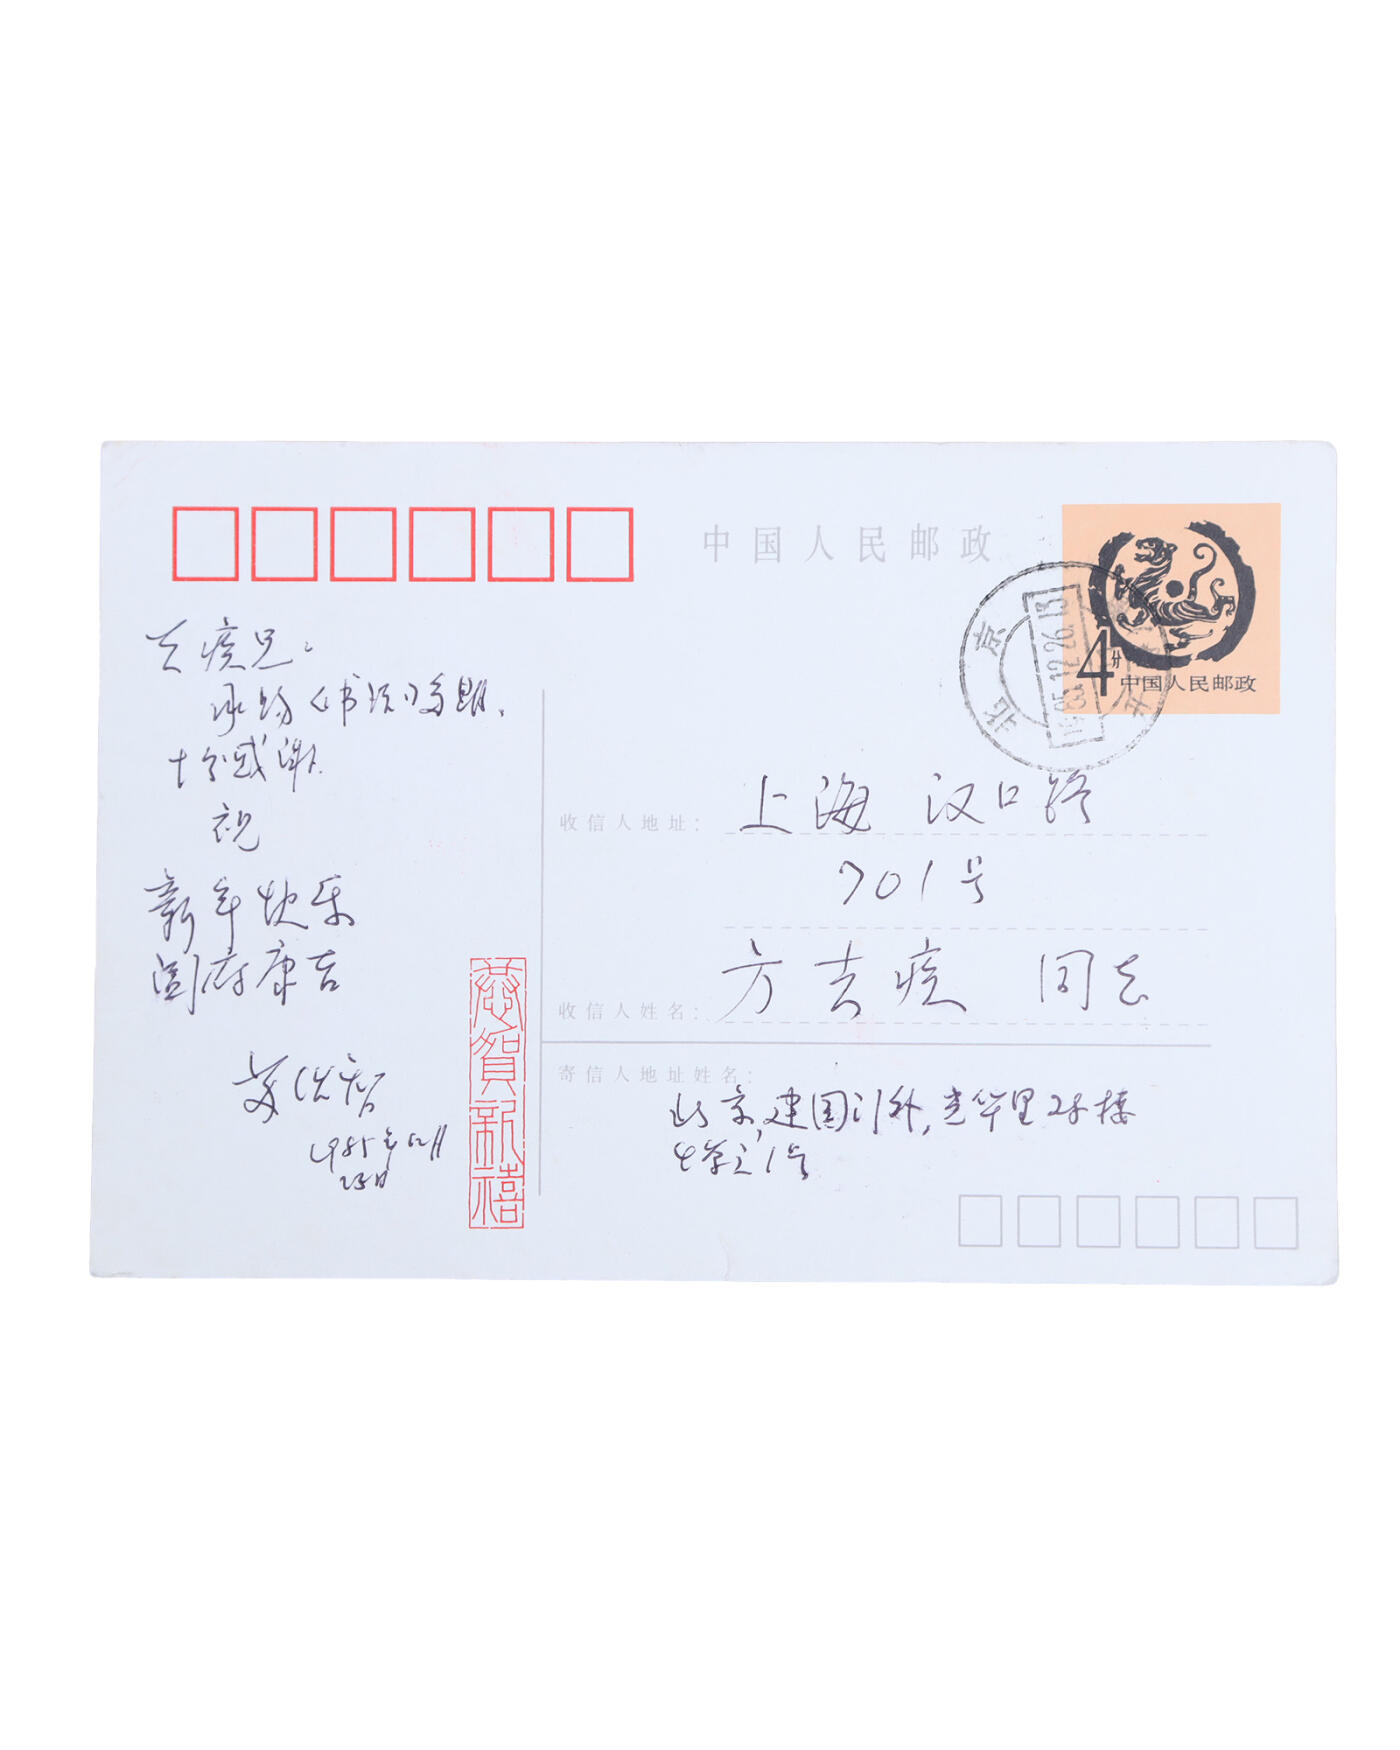 中国人民邮政
4分
中国人民邮政
北京
1985.12.26.13
去疾兄：
承赐《书法》多期，
十分感谢。
祝
新年快乐
阖府康吉
苏
1985年12月
23日
恭贺新禧
收信人地址：
上海 汉口路
701号
收信人姓名：
方去疾 同志
寄信人地址姓名：
北京，建国门外，光华里
1号